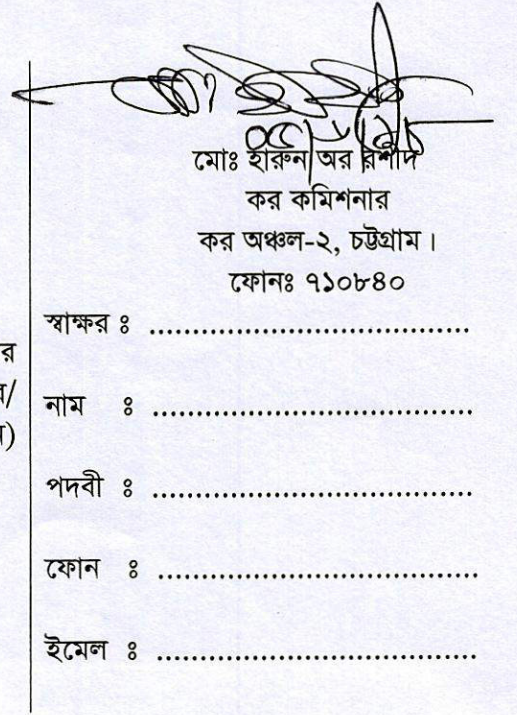 মোঃ হারুন অর রশিদ
কর কমিশনার
কর অঞ্চল-২, চট্টগ্রাম।
ফোনঃ ৭১০৮৪০
স্বাক্ষর ঃ ................................
র
নাম ঃ ................................
/
)
পদবী ঃ ................................
ফোন ঃ ................................
ইমেল ঃ ................................